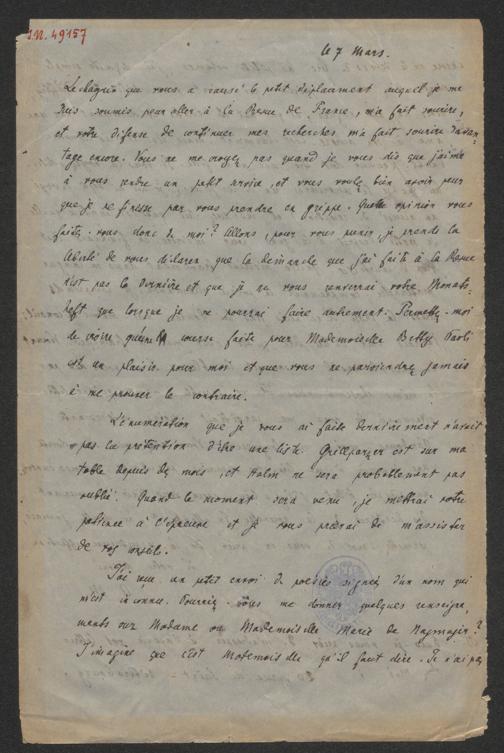 I.N. 49157
le 7 Mars.
Le chagrin que vous a causé le petit déplacement auquel je me
suis soumis pour aller à la Revue de France, m'a fait sourire,
et votre défense de continuer mes recherches m'a fait sourire davan-
tage encore. Vous ne me croyez pas quand je vous dis que j'aime
à vous rendre un petit service, et vous voulez bien avoir peur
que je ne finisse par vous prendre en grippe. Quelle opinion vous
faites-vous donc de moi? Allons, pour vous punir, je prends la
liberté de vous déclarer que la démarche que j'ai faite à la Revue
n'est pas la dernière et que je ne vous renverrai votre Monats-
heft que lorsque je ne pourrai faire autrement. Permettez-moi
de croire qu'une course faite pour Mademoiselle Betty Paoli
est un plaisir pour moi et que vous ne parviendrez jamais
à me prouver le contraire.
L'énumération que je vous ai faite dernièrement n'avait
pas la prétention d'être une liste. Grillparzer est sur ma
table depuis des mois, et Halm ne sera probablement pas
oublié. Quand le moment sera venu je mettrai votre
patience à l'épreuve et je vous prierai de m'assister
de vos conseils.
J'ai reçu un petit envoi de poésies signées d'un nom qui
m'est inconnu. Pourriez-vous me donner quelques renseigne-
ments sur Madame ou Mademoiselle Marie de Najmajer?
J'imagine que c'est Mademoiselle qu'il faut dire. Je n'ai pas